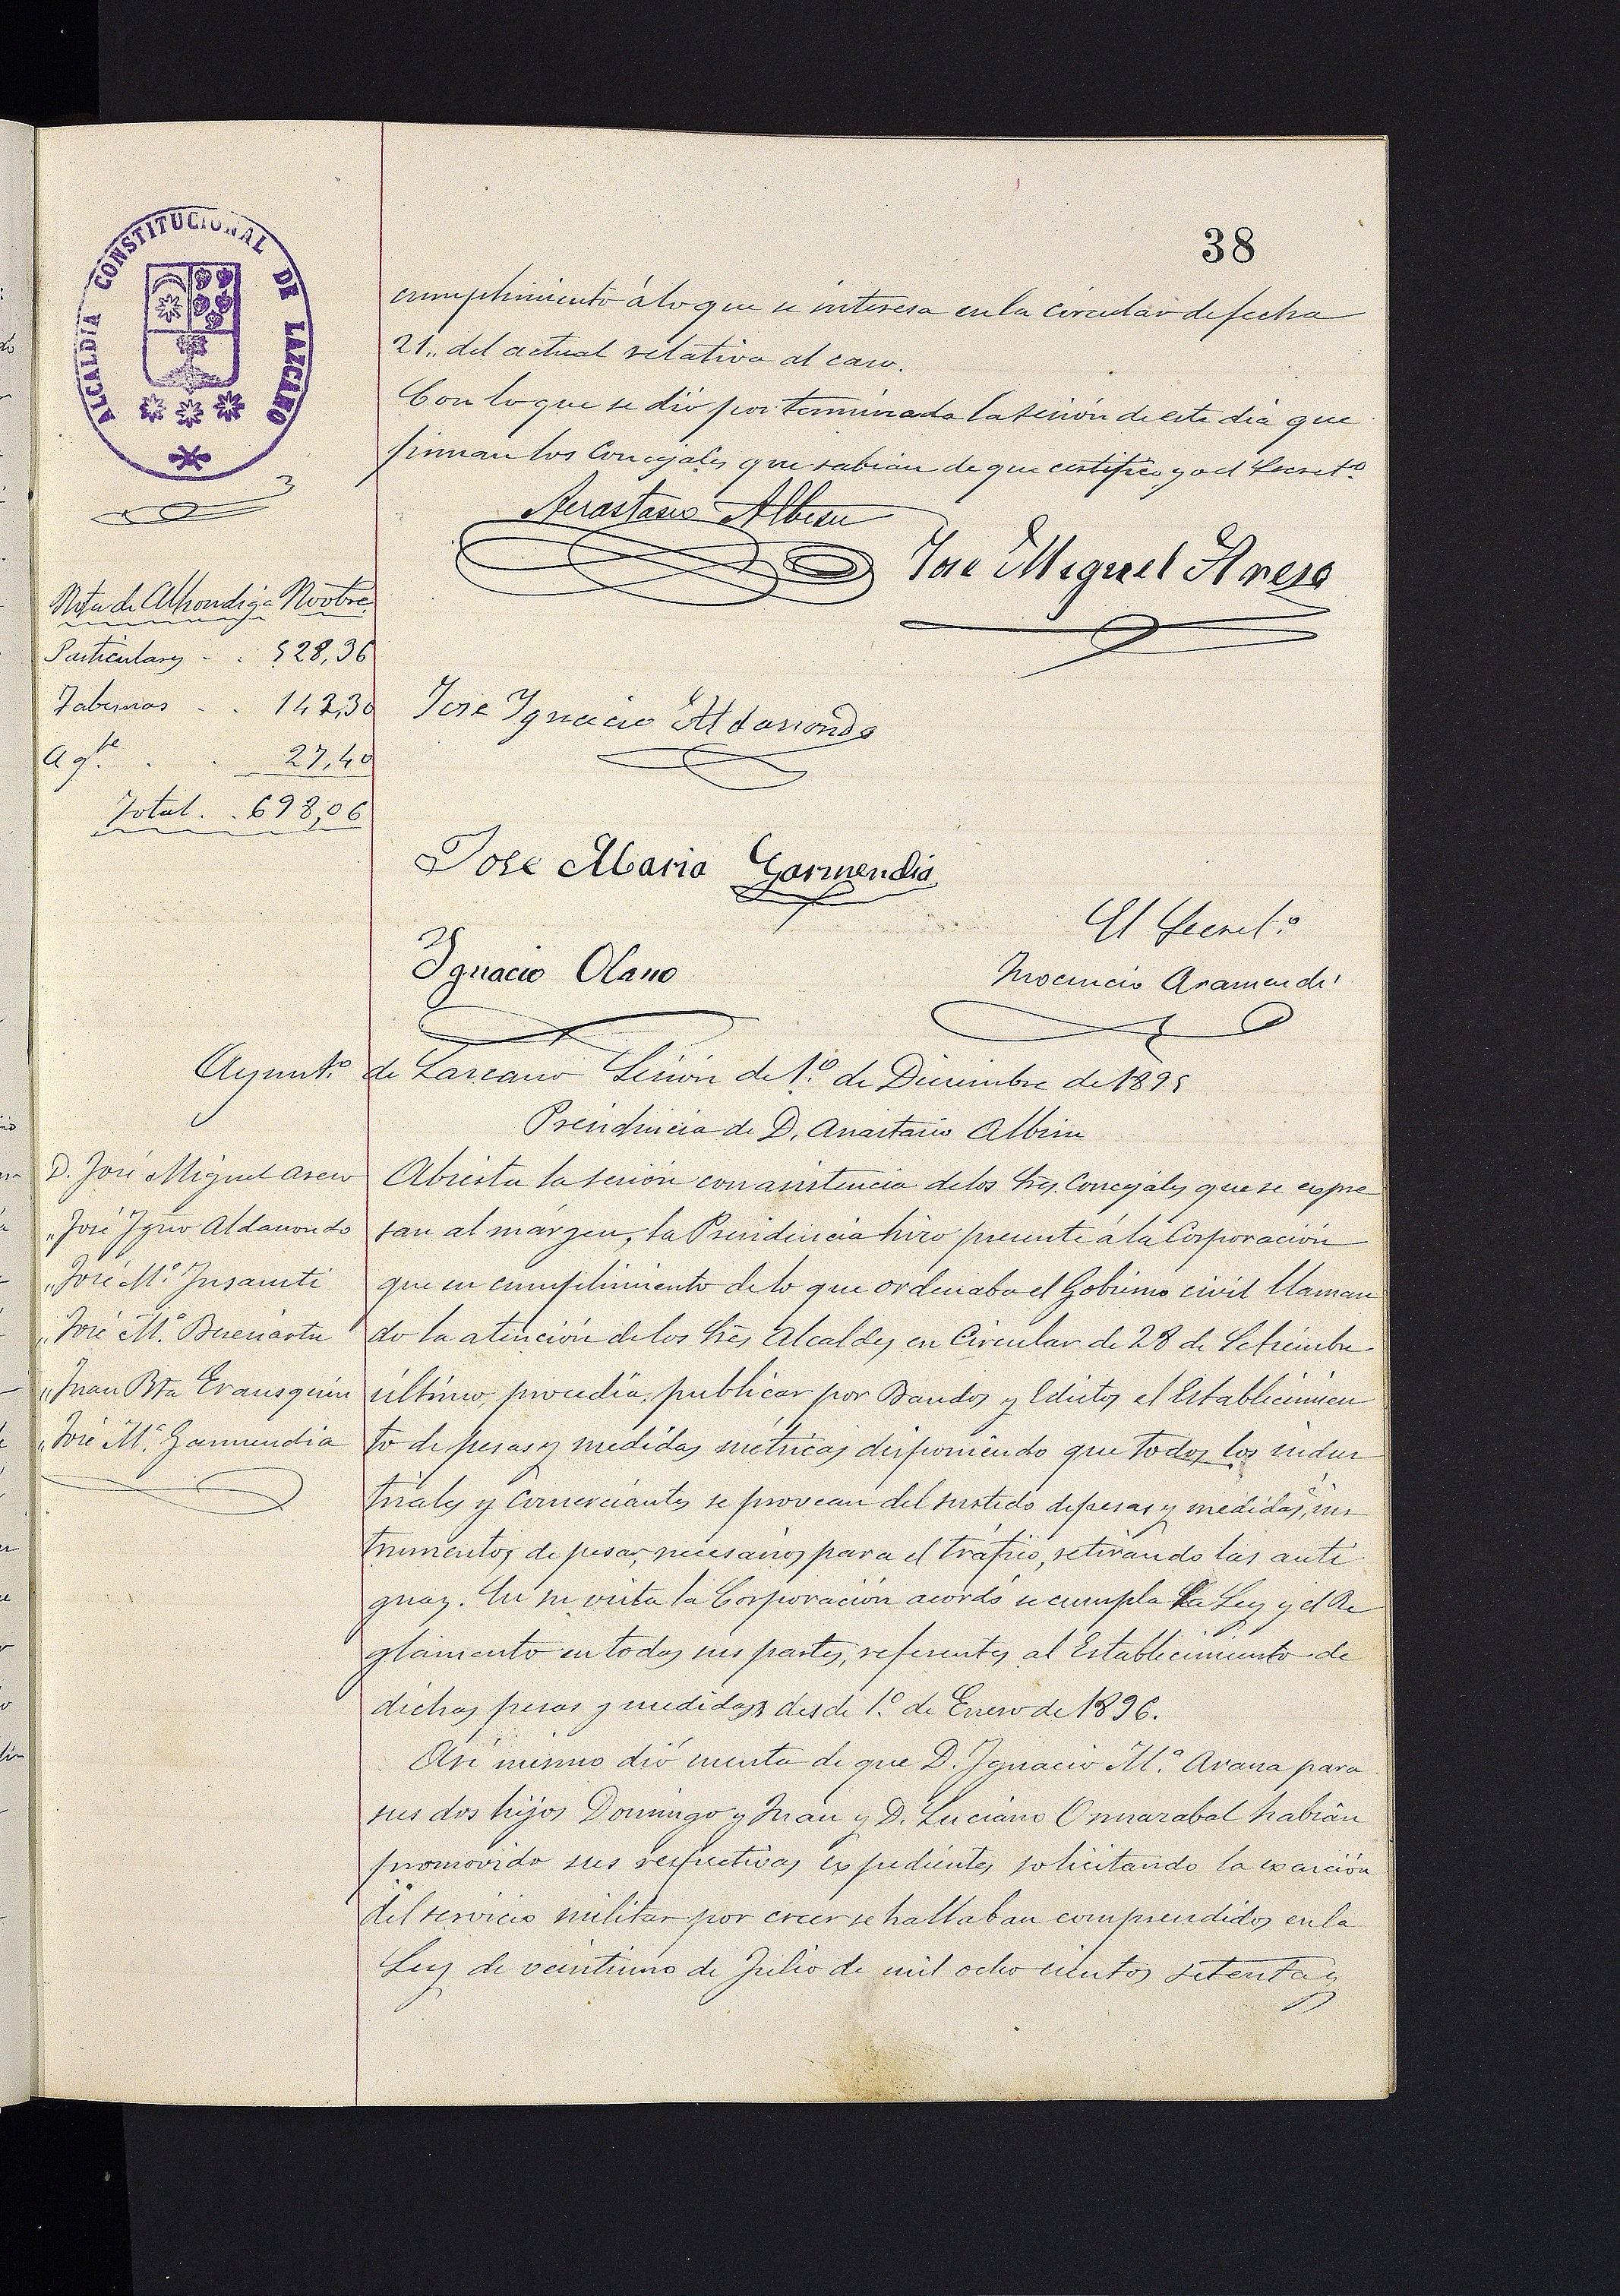 38
ALCALDÍA CONSTITUCIONAL DE LAZCANO
cumplimiento á lo que se interesa en la circular de fecha
21,, del actual relativa al caso.
Con lo que se dió por terminada la sesión de este dia que
firman los Concejales que sabian de que certifico yo el Secret.º
Anastasio Albisu
Jose Miguel Areso
Nota de Alhondiga Novbre
Particulares . . 528,36
Tabernas . . 142,30
Ag.te . . 27,40
Total . . 698,06
Jose Ygnacio Aldasoro
Jose Maria Garmendia
Ygnacio Olano
El Secret.º
Inocencio Aramendi
Ayunt.º de Lazcano Sesión de 1.º de Diciembre de 1895
Presidencia de D. Anastasio Albisu
D. José Miguel Areso
„ José Ygno Aldasoro
„ José M.ª Insausti
„ José M.ª
„ Juan Bta Erausquin
„ José M.ª Garmendia
Abierta la sesión con asistencia de los Sres. Concejales que se expre
san al márgen, la Presidencia hizo presente á la Corporación
que en cumplimiento de lo que ordenaba el Gobierno civil llaman
do la atención de los Sres Alcaldes en Circular de 28 de Setiembre
último, procedia, publicar por Bandos y Edictos el Establecimien
to de pesas y medidas métricas disponiendo que todos los indus
triales y Comerciantes se provean del surtido de pesas y medidas, ins
trumentos de pesar, necesarios para el tráfico, retirando las anti
guas. En su vista la Corporación acordó se cumpla la Ley y el Re
glamento en todas sus partes, referentes al Establecimiento de
dichas pesas y medidas desde 1.º de Enero de 1896.
Asi mismo dió cuenta de que D. Ygnacio M.ª Arana para
sus dos hijos Domingo y Juan y D. Luciano habian
promovido sus respectivas expedientes solicitando la exención
del servicio militar por creer se hallaban comprendidos en la
Ley de veintiuno de Julio de mil ocho cientos setenta y